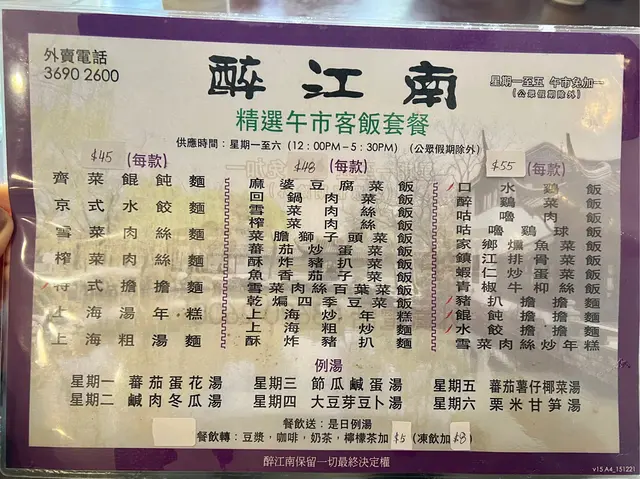 外賣電話
3690 2600
醉江南
星期一至五 午市免加一
(公眾假期除外)
精選午市客飯套餐
供應時間：星期一至六 (12：00PM－5：30PM) (公眾假期除外)
$45 (每款)
齊菜餛飩麵
京式水餃麵
雪菜肉絲麵
榨菜肉絲麵
特式擔擔麵
上海湯年糕
上海粗湯麵
$48 (每款)
麻婆豆腐菜飯
回鍋肉菜飯
雪菜肉絲飯
榨菜肉絲飯
菜膽獅子頭菜飯
蕃茄炒蛋菜飯
酥炸豬扒菜飯
魚香茄子菜飯
雪菜肉絲百葉菜飯
乾煸四季豆菜飯
上海炒年糕
上海粗炒麵
酥炸豬扒麵
$55 (每款)
口水雞飯
醉雞菜飯
咕嚕肉飯
咕嚕雞球飯
家鄉魚飯
鎮江排骨菜飯
蝦仁炒蛋菜飯
青椒牛絲飯
豬扒擔擔麵
餛飩擔擔麵
水餃擔擔麵
雪菜肉絲炒年糕
例湯
星期一 蕃茄蛋花湯
星期三 節瓜鹹蛋湯
星期五 蕃茄薯仔椰菜湯
星期二 鹹肉冬瓜湯
星期四 大豆芽豆卜湯
星期六 栗米甘笋湯
餐飲送：是日例湯
餐飲轉：豆漿，咖啡，奶茶，檸檬茶加 $5 (凍飲加 $8)
醉江南保留一切最終決定權
v15 A4_151221